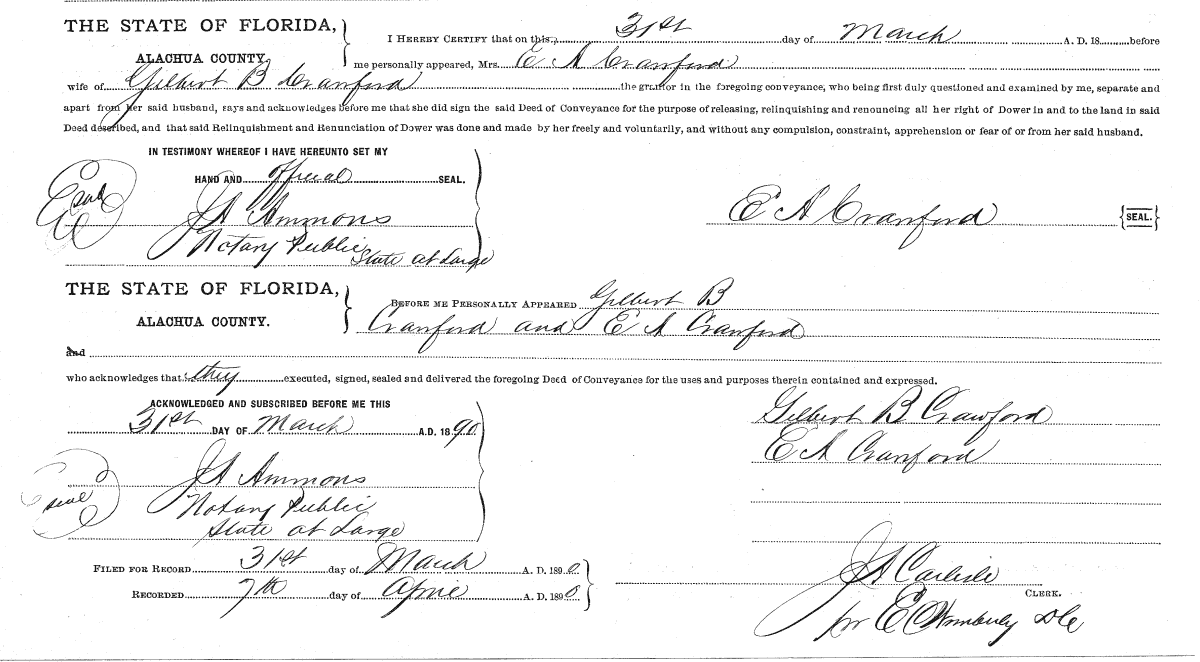 THE STATE OF FLORIDA,
ALACHUA COUNTY.
I HEREBY CERTIFY that on this 31st day of March A. D. 18 before
me personally appeared, Mrs. E A Cranford
wife of Gilbert B Cranford the grantor in the foregoing conveyance, who being first duly questioned and examined by me, separate and
apart from her said husband, says and acknowledges before me that she did sign the said Deed of Conveyance for the purpose of releasing, relinquishing and renouncing all her right of Dower in and to the land in said
Deed described, and that said Relinquishment and Renunciation of Dower was done and made by her freely and voluntarily, and without any compulsion, constraint, apprehension or fear of or from her said husband.
IN TESTIMONY WHEREOF I HAVE HEREUNTO SET MY
HAND AND official SEAL.
seal
J A Ammons
E A Cranford {SEAL.}
Notary Public
State at Large
THE STATE OF FLORIDA,
ALACHUA COUNTY.
BEFORE ME PERSONALLY APPEARED Gilbert B
Cranford and E A Cranford
and
who acknowledges that they executed, signed, sealed and delivered the foregoing Deed of Conveyance for the uses and purposes therein contained and expressed.
ACKNOWLEDGED AND SUBSCRIBED BEFORE ME THIS
31st DAY OF March A.D. 1890
Gilbert B Crawford
E A Cranford
J A Ammons
seal
Notary Public
State at Large
FILED FOR RECORD 31st day of March A. D. 1890
RECORDED 7th day of April A. D. 1890
J A Carlisle
CLERK.
pr E C Wimberly DC